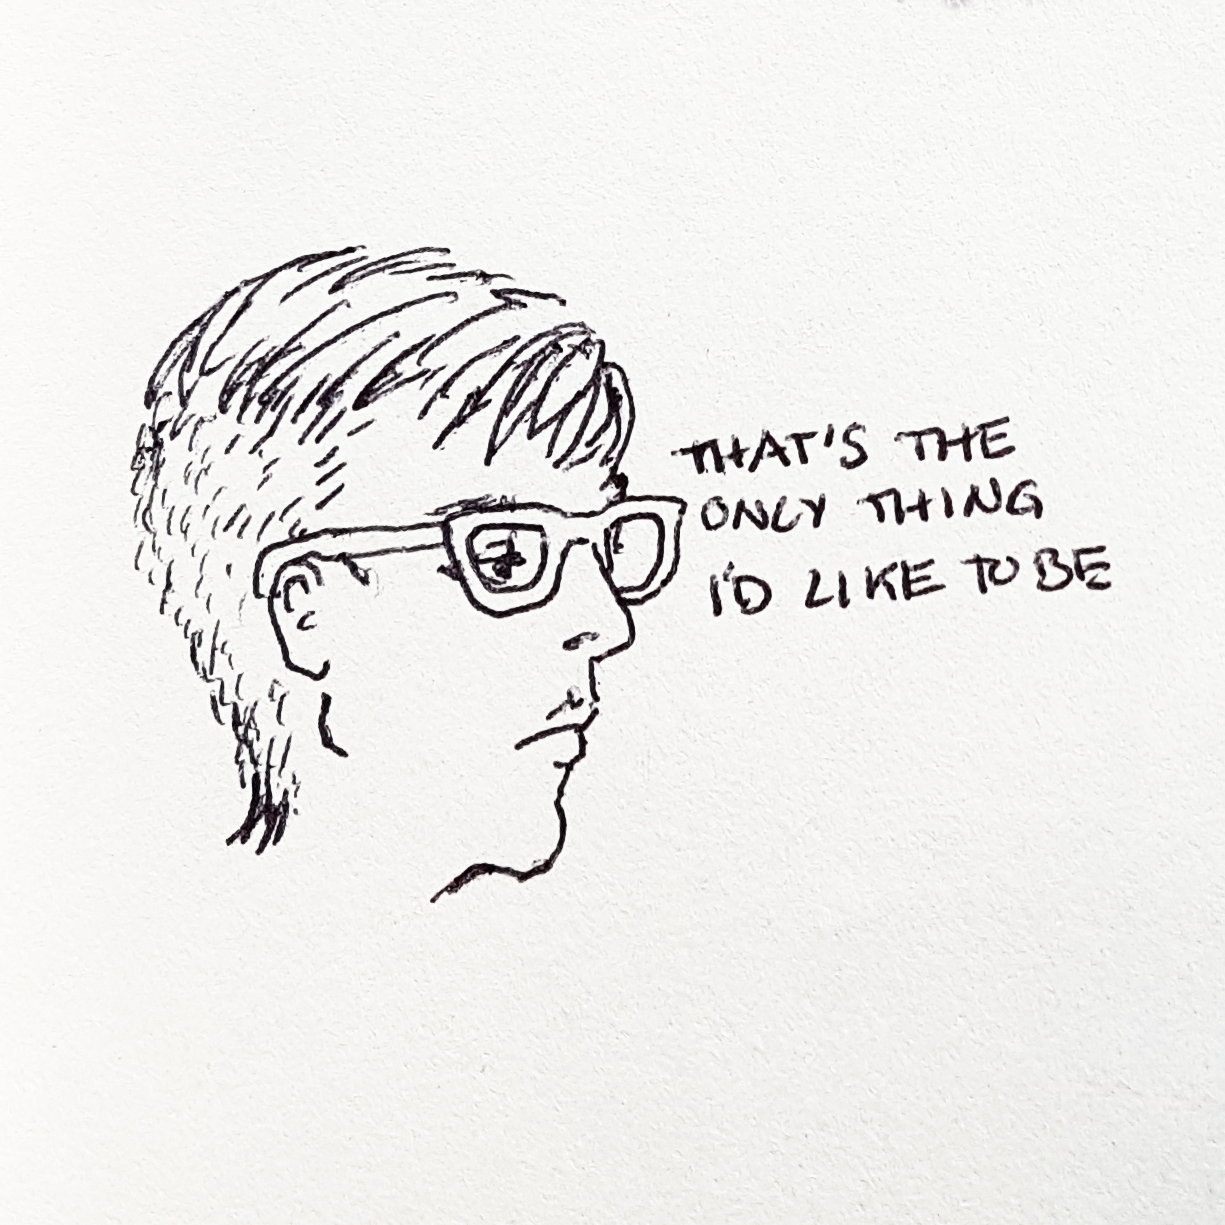 THAT'S THE
ONLY THING
I'D LIKE TO BE